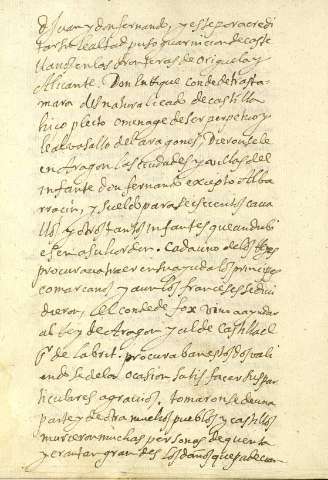 D Juan y don fernando, y este por acredi
tar su lealtad puso guarnicion de caste
llanos en las fronteras de origuela y
Alicante. Don Enrique conde de trasta
mara desnaturalicado de castilla
hico pleito omenage de ser perpetuo y
leal vasallo del aragones, Dieronsele
en Aragon las ciudades y villas del
infante don fernando excepto Alba
rracin, y sueldo para seiscientos cava
llos y otros tantos infantes que andubi
esen a su horden. Cada uno de los Reyes
procurava traer en su ayuda los principes
comarcanos y aun los franceses se divi
dieron, el conde de fox vino a ayudar
al Rey de Aragon y al de Castilla el
Sr de labrit. procuraban estos dos vali
endose de la ocasion satisfacer sus par
ticulares agravios. tomaronse de una
parte y de otra muchos pueblos y castillos
murieron muchas personas de quenta
y eran tan grandes los daños que padecian